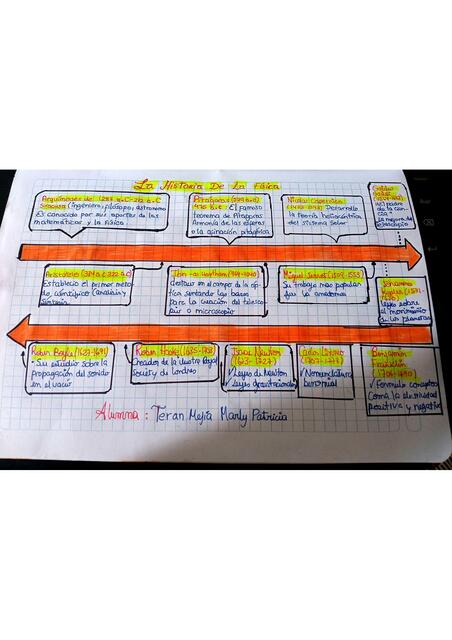 La Historia De La Física
Arquímedes de (287 a.C-212 a.C
Siracusa (ingeniero, filósofo, astronomo
Es conocido por sus aportes de las
matemáticas y la física
Pitágoras
El famoso
teorema de Pitágoras
Armonía de las esferas
o la afinación pitagórica
Nicolas Copernico
Desarrollo
la teoría heliocéntrica
del sistema solar
Galileo
Aristoteles (384 a.C 322 a.C)
Establecio el primer meto
do científico (analisis y
sintesis
destaco en el campo de la óp
tica sentando las bases
para la creación del telesco
pio o microscopio
Miguel Servet (1509-1553)
Su trabajo mas popular
fue la
Johannes
Kepler (1571-
1630)
leyes sobre
el movimiento
de los planetas
Robert Boyle (1627-1691)
Su estudio sobre la
propagación del sonido
en el vacio
Robert Hooke (1635-1703)
Creador de la
society de Londres
Isaac Newton
✓ Leyes de Newton
✓ Leyes gravitacionales
(1707-1778)
✓ Nomenclatura
binomial
Benjamin
Franklin
✓ Formulo conceptos
como la electricidad
positiva y negativa
Alumna : Teran Mejía Marly Patricia